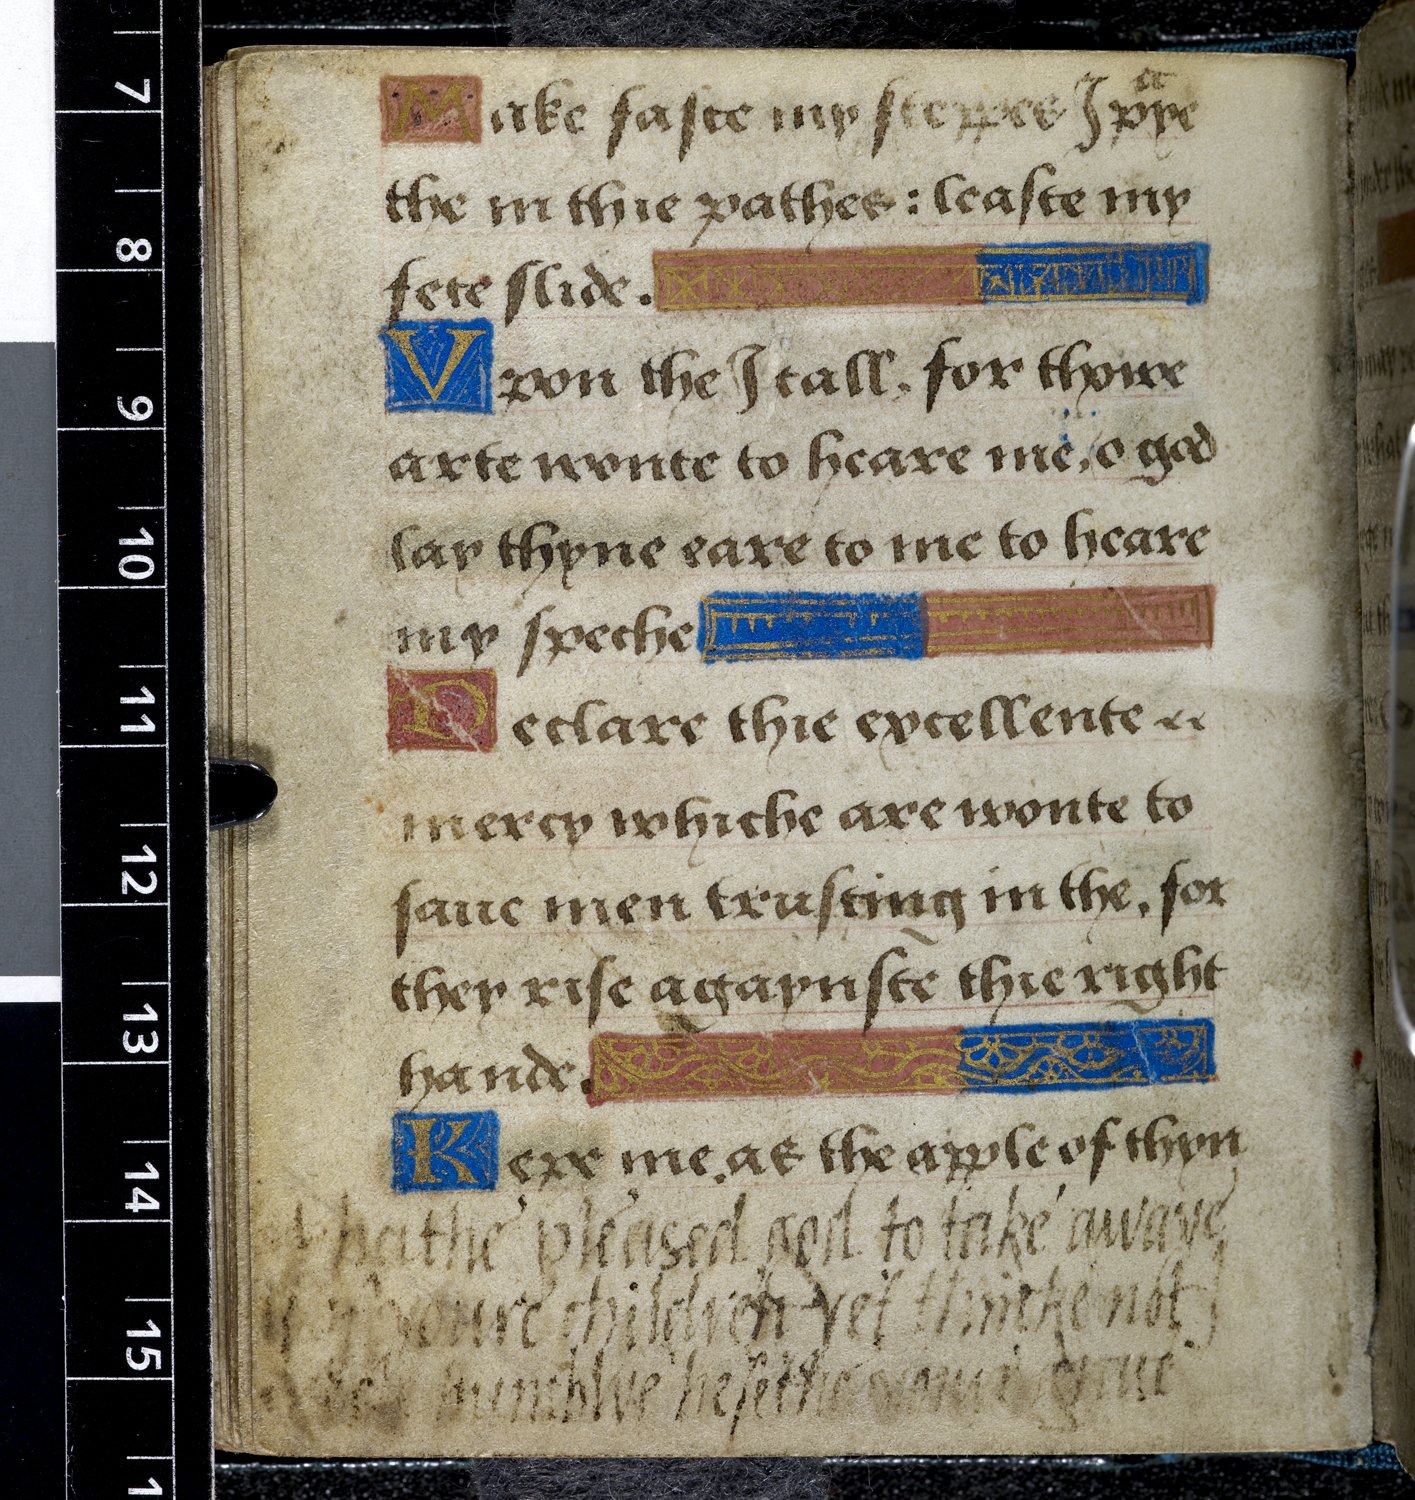 Make faste my steppes I pͣye
the in thie pathes : leaste my
fete slide.
Vpon the I call, for thowe
arte wonte to heare me, o god
lay thyne eare to me to heare
my speche
Declare thie excellente
mercy whiche are wonte to
saue men trusting in the, for
they rise agaynste thie right
hande.
Kepe me, as the apple of thyn
hathe pleased god to take awaye
youre children yet thincke not
humblye besethe
7
8
9
10
11
12
13
14
15
1